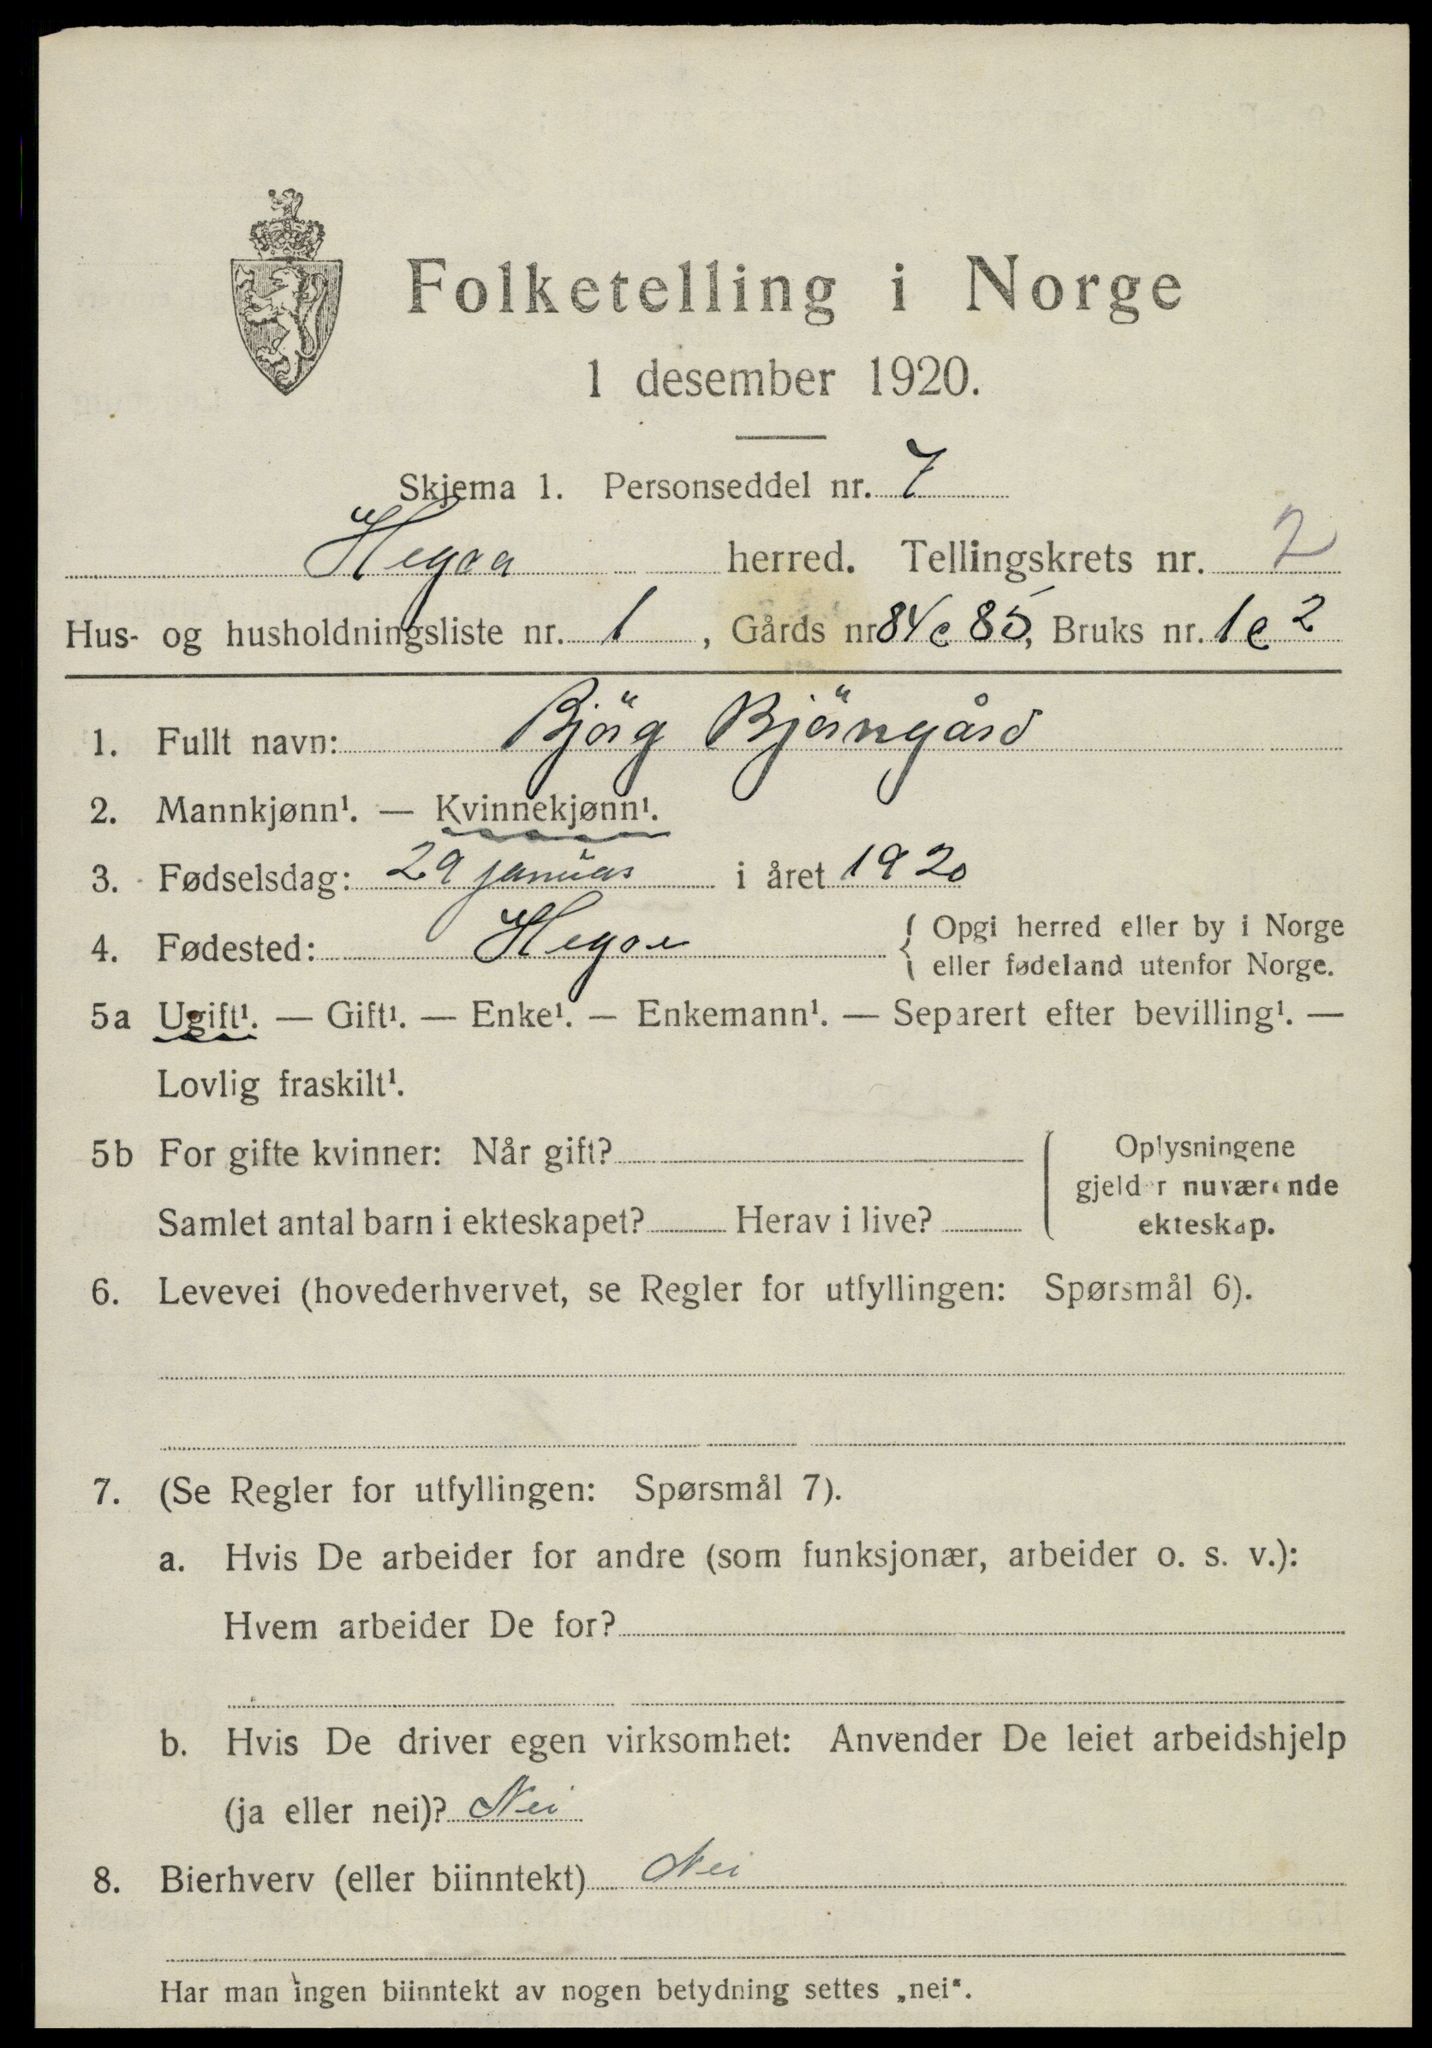 Folketelling i Norge
1 desember 1920.
Skjema 1. Personseddel nr. 7
Hegra herred. Tellingskrets nr. 2
Hus- og husholdningsliste nr. 1, Gårds nr 84 & 85, Bruks nr. 1 & 2
1. Fullt navn: Björg Björngård
2. Mannkjønn¹. — Kvinnekjønn¹.
3. Fødselsdag: 29 januar i året 1920
4. Fødested: Hegra { Opgi herred eller by i Norge
eller fødeland utenfor Norge.
5a Ugift¹. — Gift¹. — Enke¹. — Enkemann¹. — Separert efter bevilling¹. —
Lovlig fraskilt¹.
5b For gifte kvinner: Når gift?
Samlet antal barn i ekteskapet? Herav i live?
Oplysningene
gjelder nuværende
ekteskap.
6. Levevei (hovederhvervet, se Regler for utfyllingen: Spørsmål 6).
7. (Se Regler for utfyllingen: Spørsmål 7).
a. Hvis De arbeider for andre (som funksjonær, arbeider o. s. v.):
Hvem arbeider De for?
b. Hvis De driver egen virksomhet: Anvender De leiet arbeidshjelp
(ja eller nei)? Nei
8. Bierhverv (eller biinntekt) Nei
Har man ingen biinntekt av nogen betydning settes „nei“.